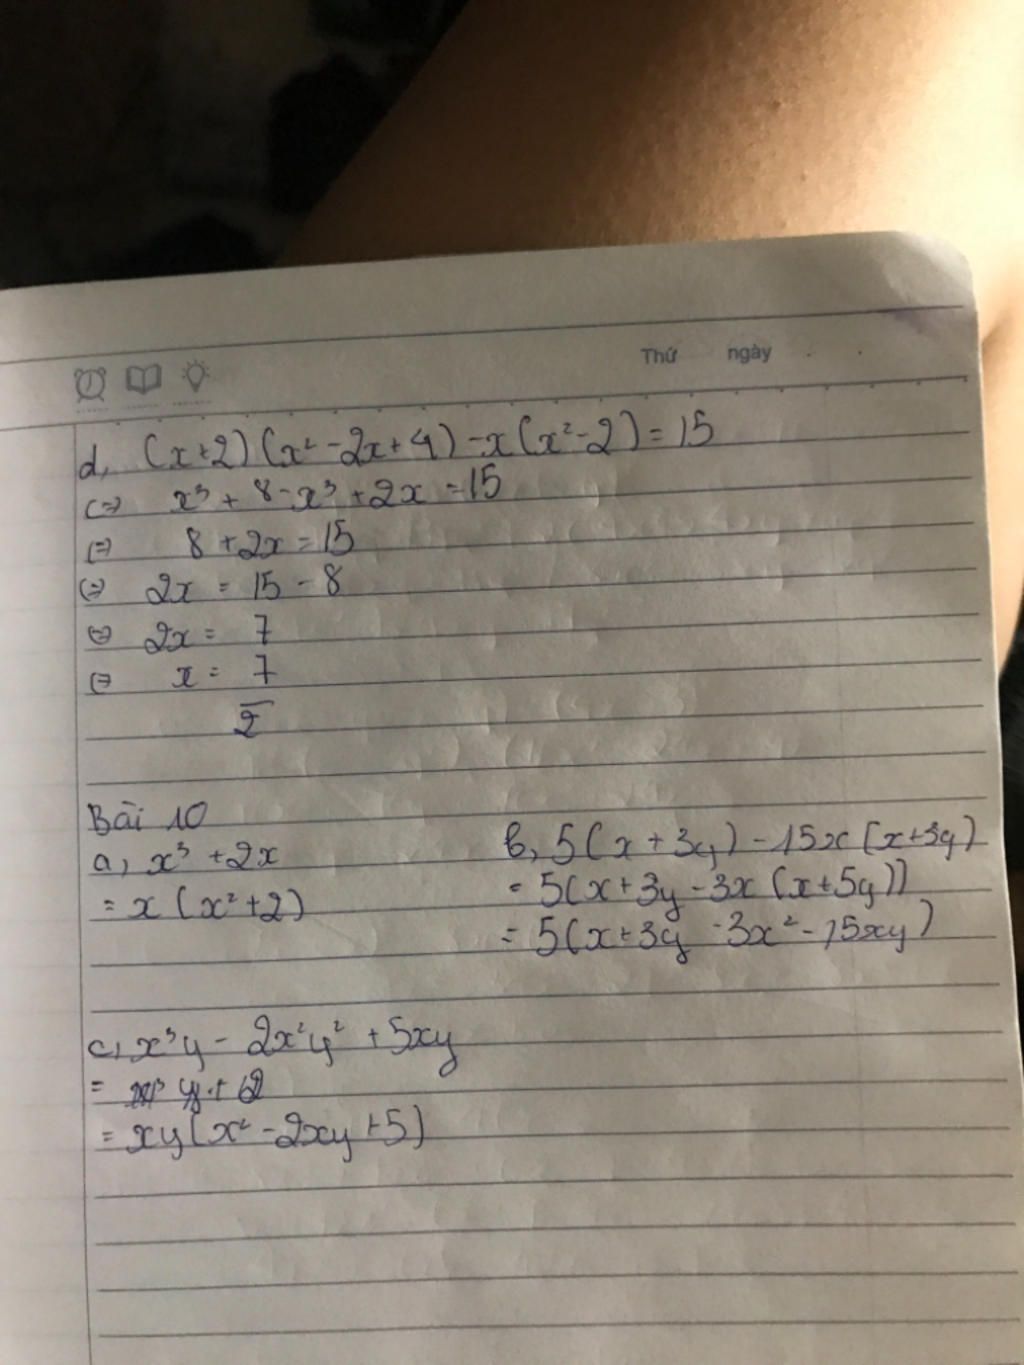 Thứ ngày
d, (x+2)(x²-2x+4)-x(x²-2)=15
(=) x³+8-x³+2x=15
(=) 8+2x=15
(=) 2x = 15 - 8
(=) 2x = 7
(=) x = 7/2
Bài 10
a, x³+2x
= x(x²+2)
b, 5(x+3y)-15x(x+3y)
= 5(x+3y-3x(x+5y))
= 5(x+3y-3x²-15xy)
c, x³y - 2x²y² + 5xy
=
= xy(x²-2xy+5)